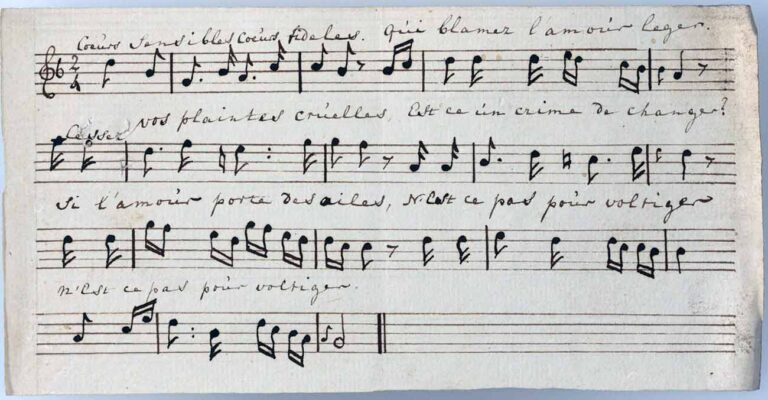 Coeurs sensibles Coeurs fideles. Qui blamez l'amour leger.
Cessez vos plaintes cruelles, Est ce un crime de changer?
Si l'amour porte des ailes, N'est ce pas pour voltiger
N'est ce pas pour voltiger.